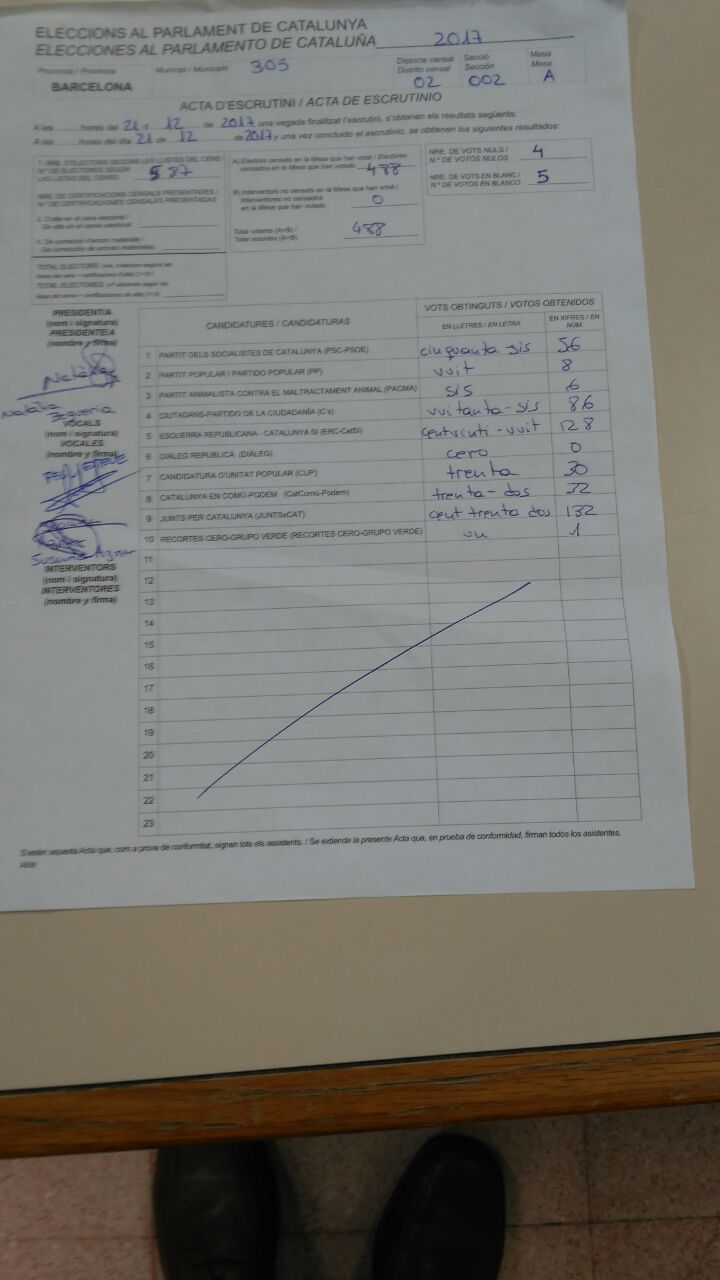 ELECCIONS AL PARLAMENT DE CATALUNYA
ELECCIONES AL PARLAMENTO DE CATALUÑA 2017
Provincia / Provincia Municipi / Municipio 305 Districte censal Secció Mesa
Distrito censal Sección Mesa
BARCELONA 02 002 A
ACTA D'ESCRUTINI / ACTA DE ESCRUTINIO
A les hores del 21 d 12 de 2017 una vegada finalitzat l'escrutini, s'obtenen els resultats següents:
A las horas del día 21 de 12 de 2017 y una vez concluido el escrutinio, se obtienen los siguientes resultados:
1. NRE. D'ELECTORS SEGONS LES LLISTES DEL CENS /
N.º DE ELECTORES SEGÚN
LAS LISTAS DEL CENSO 587
NRE. DE CERTIFICACIONS CENSALS PRESENTADES /
N.º DE CERTIFICACIONES CENSALES PRESENTADAS
A) Electors censats en la Mesa que han votat / Electores
censados en la Mesa que han votado 488
B) Interventors no censats en la Mesa que han votat /
Interventores no censados
en la Mesa que han votado 0
Total votants (A+B) /
Total votantes (A+B) 488
NRE. DE VOTS NULS /
N.º DE VOTOS NULOS 4
NRE. DE VOTS EN BLANC /
N.º DE VOTOS EN BLANCO 5
PRESIDENT/A
(nom i signatura)
PRESIDENTE/A
(nombre y firma)
Natalia
VOCALS
(nom i signatura)
VOCALES
(nombre y firma)
Susana Aznar
INTERVENTORS
(nom i signatura)
INTERVENTORES
(nombre y firma)
CANDIDATURES / CANDIDATURAS VOTS OBTINGUTS / VOTOS OBTENIDOS
EN LLETRES / EN LETRA EN XIFRES / EN NÚM.
1 PARTIT DELS SOCIALISTES DE CATALUNYA (PSC-PSOE) cinquanta-sis 56
2 PARTIT POPULAR / PARTIDO POPULAR (PP) vuit 8
3 PARTIT ANIMALISTA CONTRA EL MALTRACTAMENT ANIMAL (PACMA) sis 6
4 CIUTADANS-PARTIDO DE LA CIUDADANÍA (C's) vuitanta-sis 86
5 ESQUERRA REPUBLICANA - CATALUNYA SÍ (ERC-CatSí) centvinti-vuit 128
6 DIÀLEG REPUBLICÀ (DIÀLEG) cero 0
7 CANDIDATURA D'UNITAT POPULAR (CUP) trenta 30
8 CATALUNYA EN COMÚ-PODEM (CatComú-Podem) trenta-dos 32
9 JUNTS PER CATALUNYA (JUNTSxCAT) cent trenta dos 132
10 RECORTES CERO-GRUPO VERDE (RECORTES CERO-GRUPO VERDE) un 1
11
12
13
14
15
16
17
18
19
20
21
22
23
S'estén aquesta Acta que, com a prova de conformitat, signen tots els assistents. / Se extiende la presente Acta que, en prueba de conformidad, firman todos los asistentes.